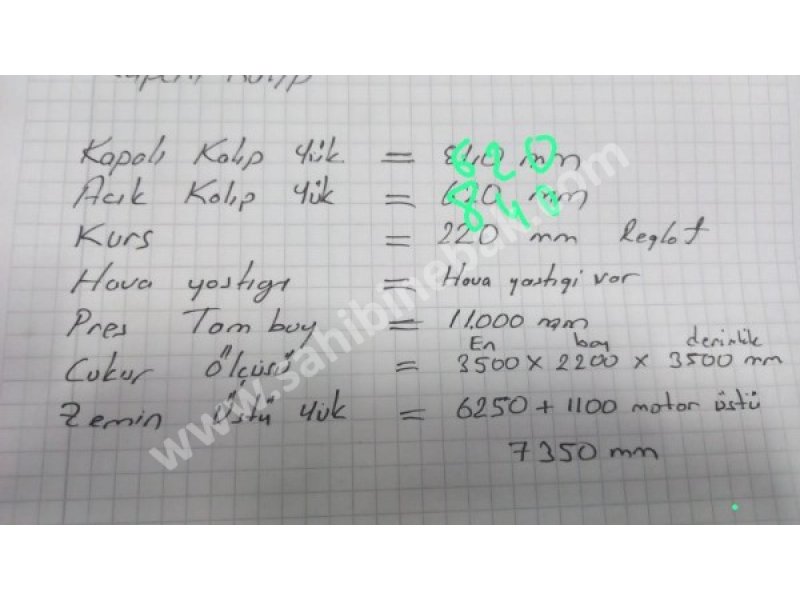 Kapalı Kalıp Yük = 620 mm
Acık Kalıp Yük = 840 mm
Kurs = 220 mm Reglaj
Hava yastıgı = Hava yastıgi var
Pres Tam boy = 11.000 mm
En boy derinlik
Cukur Ölçüsü = 3500 x 2200 x 3500 mm
Zemin Üstü Yük = 6250 + 1100 motor üstü
7350 mm
www.sahibinebak.com